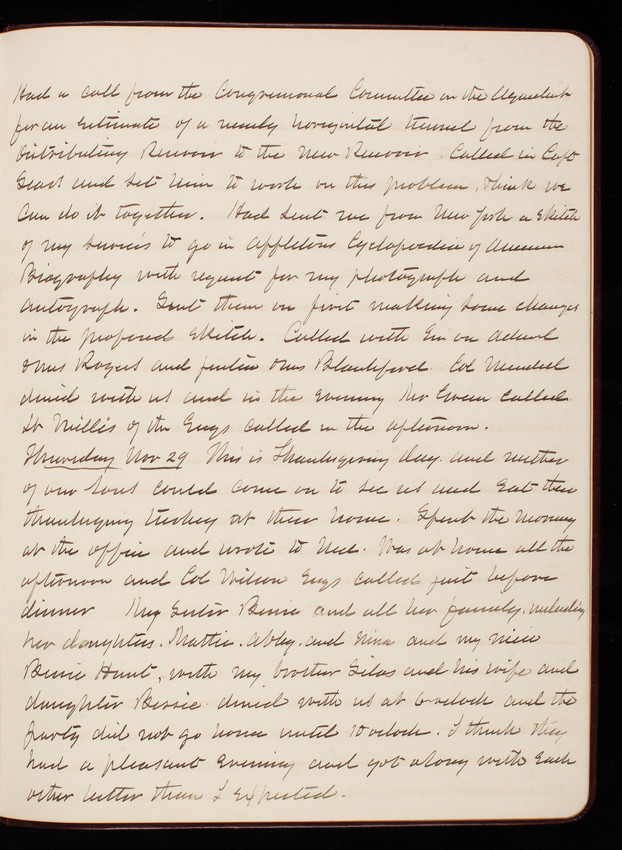 Had a call from the Congressional Committee on the Aqueduct
for an estimate of a nearly horizontal tunnel from the
Distributing Reservoir to the New Reservoir. Called in Capt
and set him to work on this problem, think we
can do it together. Had sent me from New York a sketch
of my services to go in Appletons Cyclopaedia of American
Biography with request for my photograph and
autograph. Sent them on first making some changes
in the proposed sketch. Called with Em on Admiral
Rogers and Blandford. Col Mendell
dined with us and in the evening Mr Green called.
Lt Willis of the Engs called in the afternoon.
Thursday Nov 29 This is Thanksgiving day and neither
of our sons could come on to see us and eat their
thanksgiving turkey at their home. Spent the morning
at the office and wrote to Ned. Was at home all the
afternoon and Col Wilson Engs called just before
dinner My Sister Bessie and all her family, including
her daughters. Mattie. Abby. and Nina and my niece
Bessie Hunt, with my brother Silas and his wife and
daughter Bessie dined with us at 6 oclock and the
party did not go home until 10 oclock. I think they
had a pleasant evening and got along with each
other better than I expected.